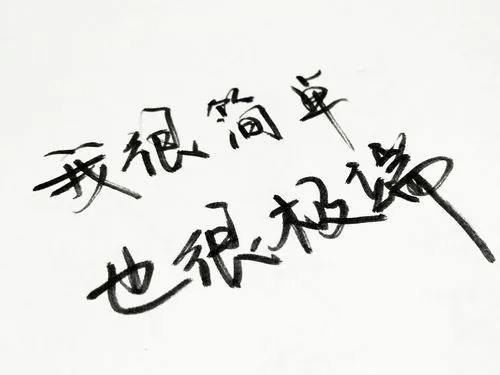 我很简单
也很极端